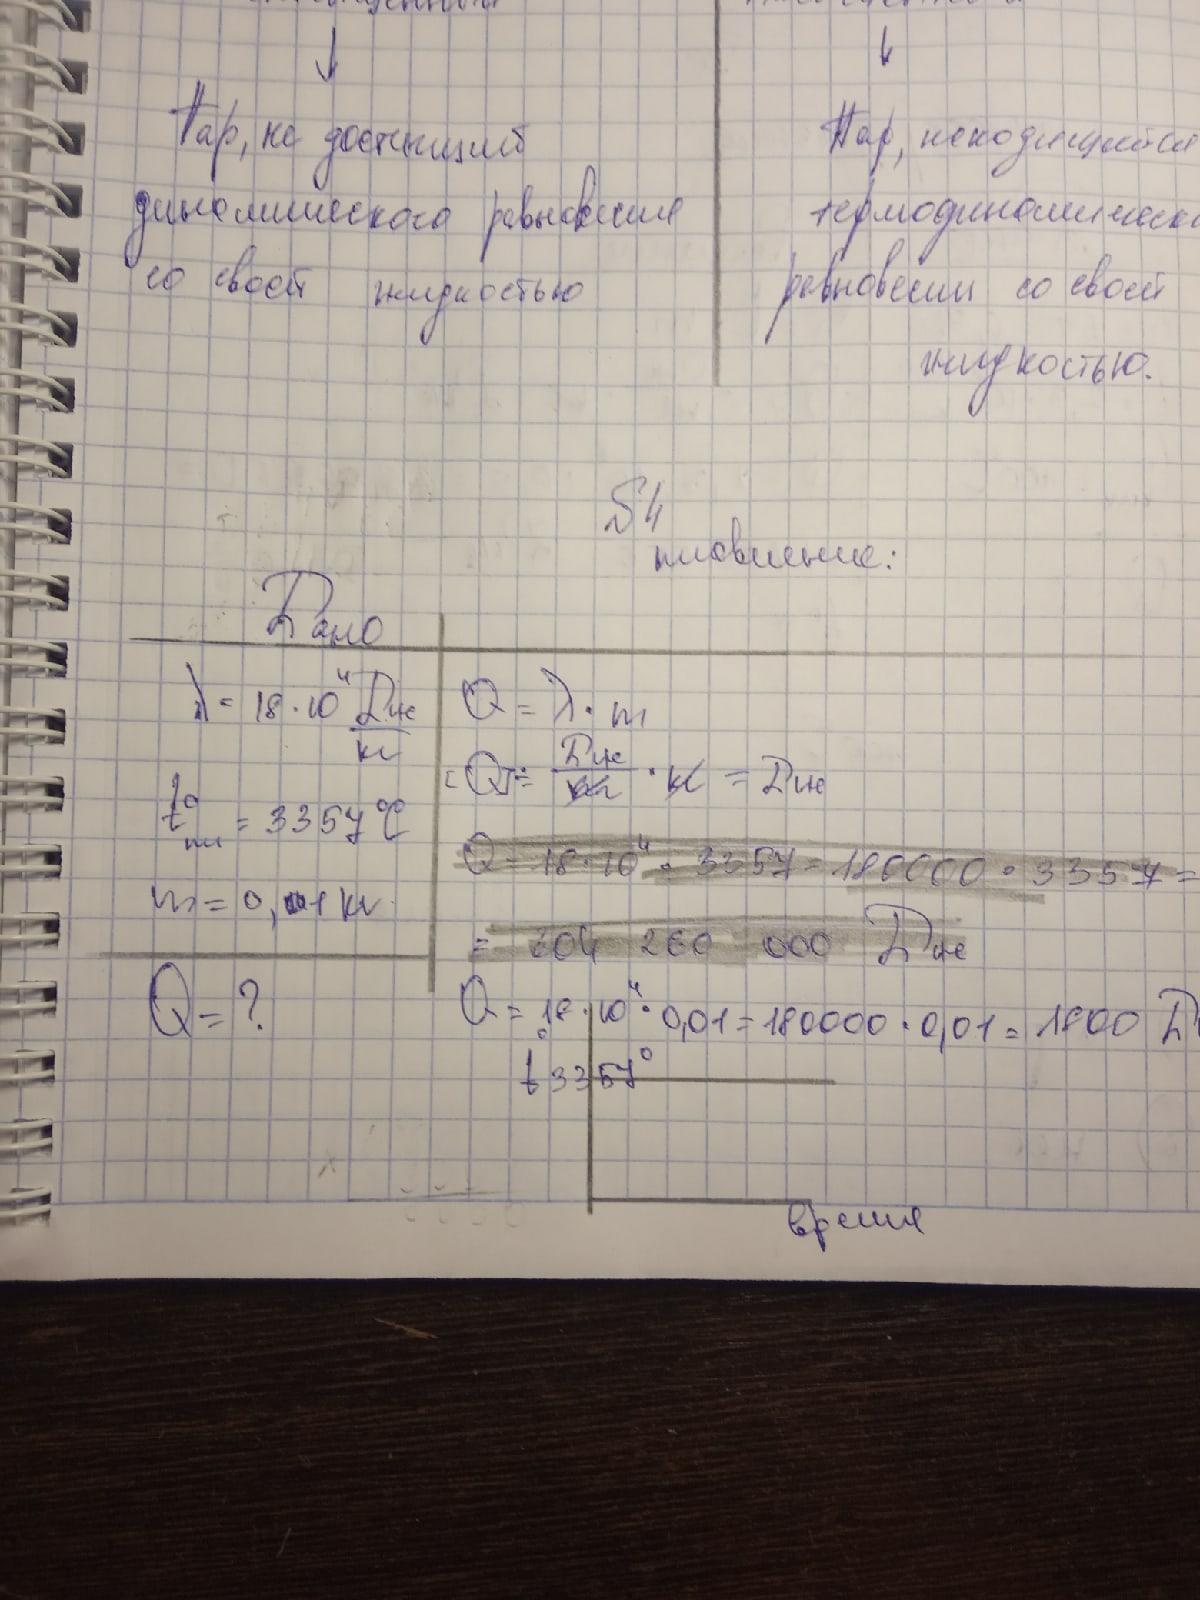 Пар, не достигший
динамического равновесия
со своей жидкостью
Пар, находящийся
термодинамическо
равновесии со своей
жидкостью.
§4
плавление:
Дано
λ = 18·10⁴ Дж/кг
t°пл = 3357 °C
m = 0,01 кг
Q = ?
Q = λ · m
[Q] = Дж/кг · кг = Дж
Q = 18·10⁴ · 3357 = 180000 · 3357 =
= 604 260 000 Дж
Q = 18·10⁴ · 0,01 = 180000 · 0,01 = 1800 Д
t° 3357°
время